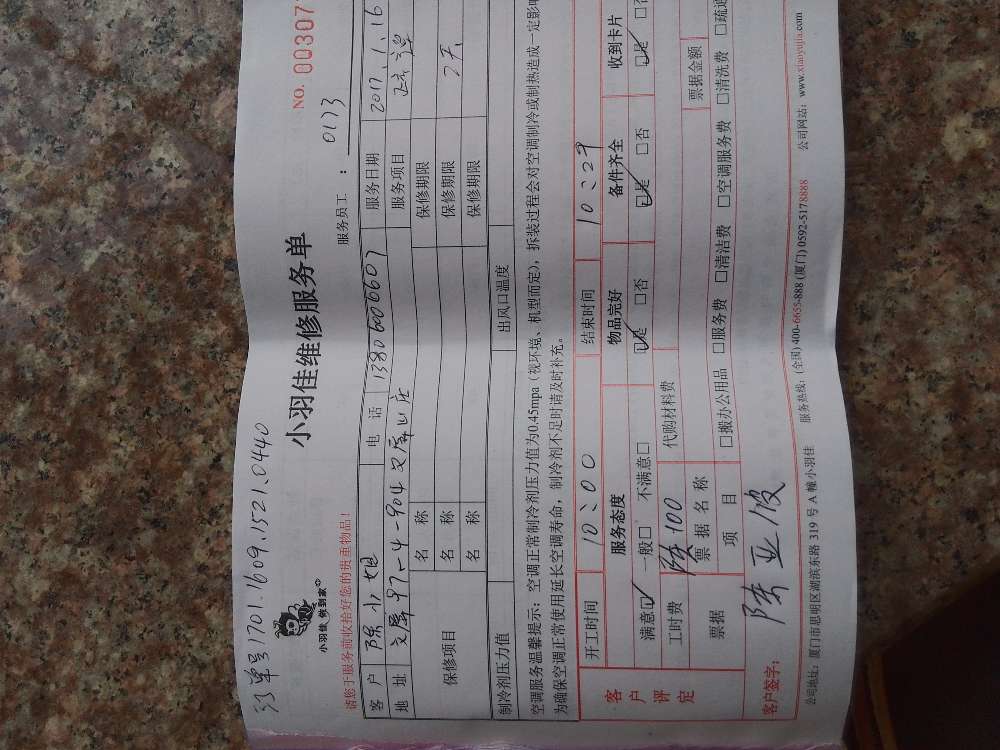 订单号1701.1609.1521.0440
小羽佳 做到家
小羽佳维修服务单
NO. 00307
请您于服务前收拾好您的贵重物品!
服务员工: 0173
客户 陈小姐 电话 13806006607 服务日期 2017.1.16
地址 文屏97-4-904文屏山庄 服务项目
保修项目 名称 保修期限
名称 保修期限 7天
名称 保修期限
制冷剂压力值 出风口温度
空调服务温馨提示: 空调正常制冷剂压力值为0.45mpa(视环境、机型而定), 拆装过程会对空调制冷或制热造成一定影
为确保空调正常使用延长空调寿命, 制冷剂不足时请及时补充。
客户评定 开工时间 10:00 结束时间 10:29
服务态度 物品完好 备件齐全 收到卡片
满意☑ 一般□ 不满意□ ☑是 □否 ☑是 □否 ☑是 □否
工时费 100 代购材料费
票据 票据名称 票据金额
项目 □搬办公用品 □服务费 □清洁费 □空调服务费 □清洗费 □疏通
客户签字:
公司地址: 厦门市思明区湖滨东路 319 号 A 幢小羽佳 服务热线: (全国) 400-6655-888 (厦门) 0592-5178888 公司网站: www.xiaoyujia.com